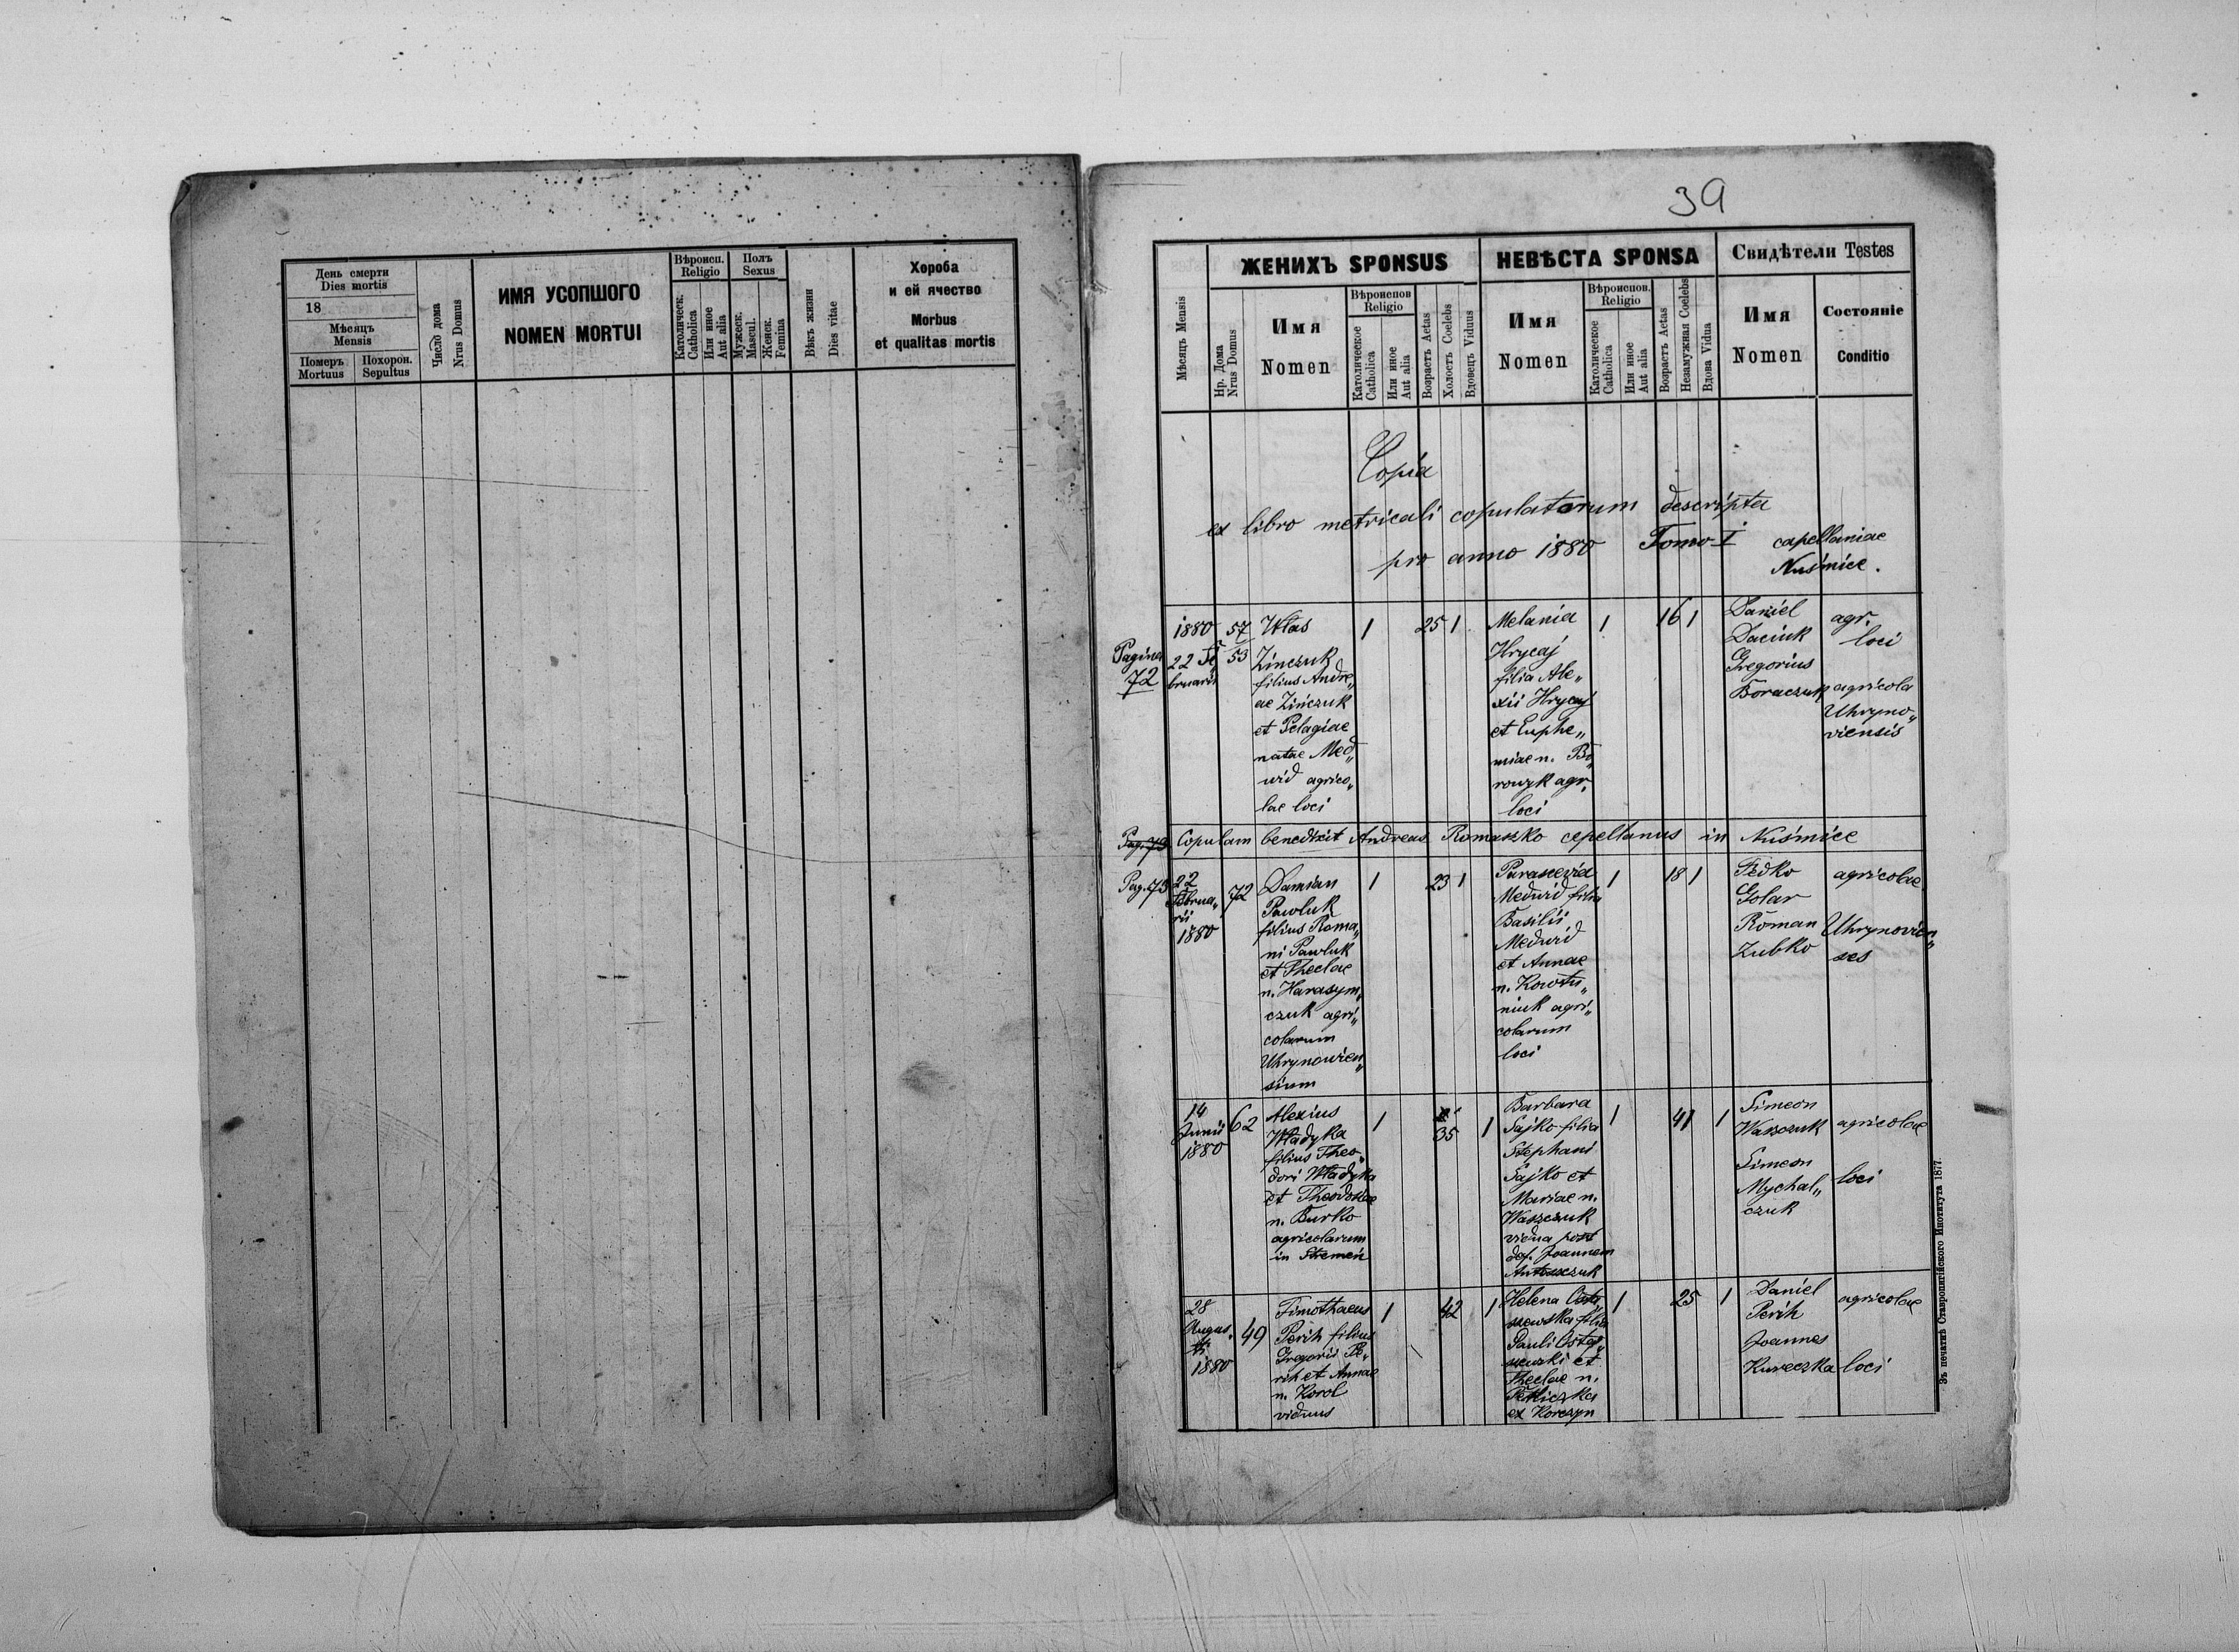 День смерти
Dies mortis
18
Мѣсяцъ
Mensis
Померъ
Mortuus
Похорон.
Sepultus
Число дома
Nrus Domus
ИМЯ УСОПШОГО
NOMEN MORTUI
Вѣроисп.
Religio
Католическ.
Catholica
Или иное
Aut alia
Полъ
Sexus
Мужеск.
Mascul.
Женск.
Femina
Вѣкъ жизни
Dies vitae
Хороба
и ей ячество
Morbus
et qualitas mortis
39
Мѣсяцъ Mensis
ЖЕНИХЪ SPONSUS
Нр. Дома
Nrus Domus
Имя
Nomen
Вѣроиспов
Religio
Католическое
Catholica
Или иное
Aut alia
Возрастъ Aetas
Холостъ Coelebs
Вдовецъ Viduus
НЕВѢСТА SPONSA
Имя
Nomen
Вѣроиспов.
Religio
Католическое
Catholica
Или иное
Aut alia
Возрастъ Aetas
Незамужная Coelebs
Вдова Vidua
Свидѣтели Testes
Имя
Nomen
Состояніе
Conditio
Copia
ex libro metricali copulatorum descripta
pro anno 1880 Tomo I capellaniae
Nuśmice.
Pagina
72
1880
22 Fe„
bruarii
57
53
Włas
Zinczuk
filius Andre„
ae Zińczuk
et Pelagiae
natae Med„
wid agrico„
lae loci
1
25
1
Melania
Hrycaj
filia Ale„
xii Hrycaj
et Euphe„
miae n. Bo„
rowyk agr.
loci
1
16
1
Daniel
Daciuk
Gregorius
Boraczuk
agr.
loci
agricola
Uhryno„
viensis
Pag. 73
Copulam benedixit Andreas Romaszko cepellanus in Nuśmice
Pag. 73
22
Februa„
rii
1880
72
Damian
Pawluk
filius Roma„
ni Pawluk
et Theclae
n. Harasym„
czuk agri„
colarum
Uhrynowien„
sium
1
23
1
Parascevia
Medwid filia
Basilii
Medwid
et Annae
n. Kowtu„
niuk agri„
colarum
loci
1
18
1
Fedko
Golar
Roman
Zubko
agricolae
Uhrynovien„
ses
14
Junii
1880
62
Alexius
Władyka
filius Theo„
dori Władyka
et Theodosiae
n. Burko
agricolarum
in Stremeń
1
35
1
Barbara
Sajko filia
Stephani
Sajko et
Mariae n.
Waszczuk
vidua post
def. Joannem
Antoszczuk
1
41
1
Simeon
Waszczuk
Simeon
Mychal„
czuk
agricolae
loci
28
Augus„
ti
1880
49
Timothaeus
Perih filius
Gregorii Pe„
rih et Annae
n. Korol
viduus
1
42
1
Helena Osta„
szewska filia
Pauli Osta„
szewski et
Theclae n.
ex Korczyn
1
25
1
Daniel
Perih
Joannes
Kureczka
agricolae
loci
Зъ печатнѣ Ставропигійского Института 1877.